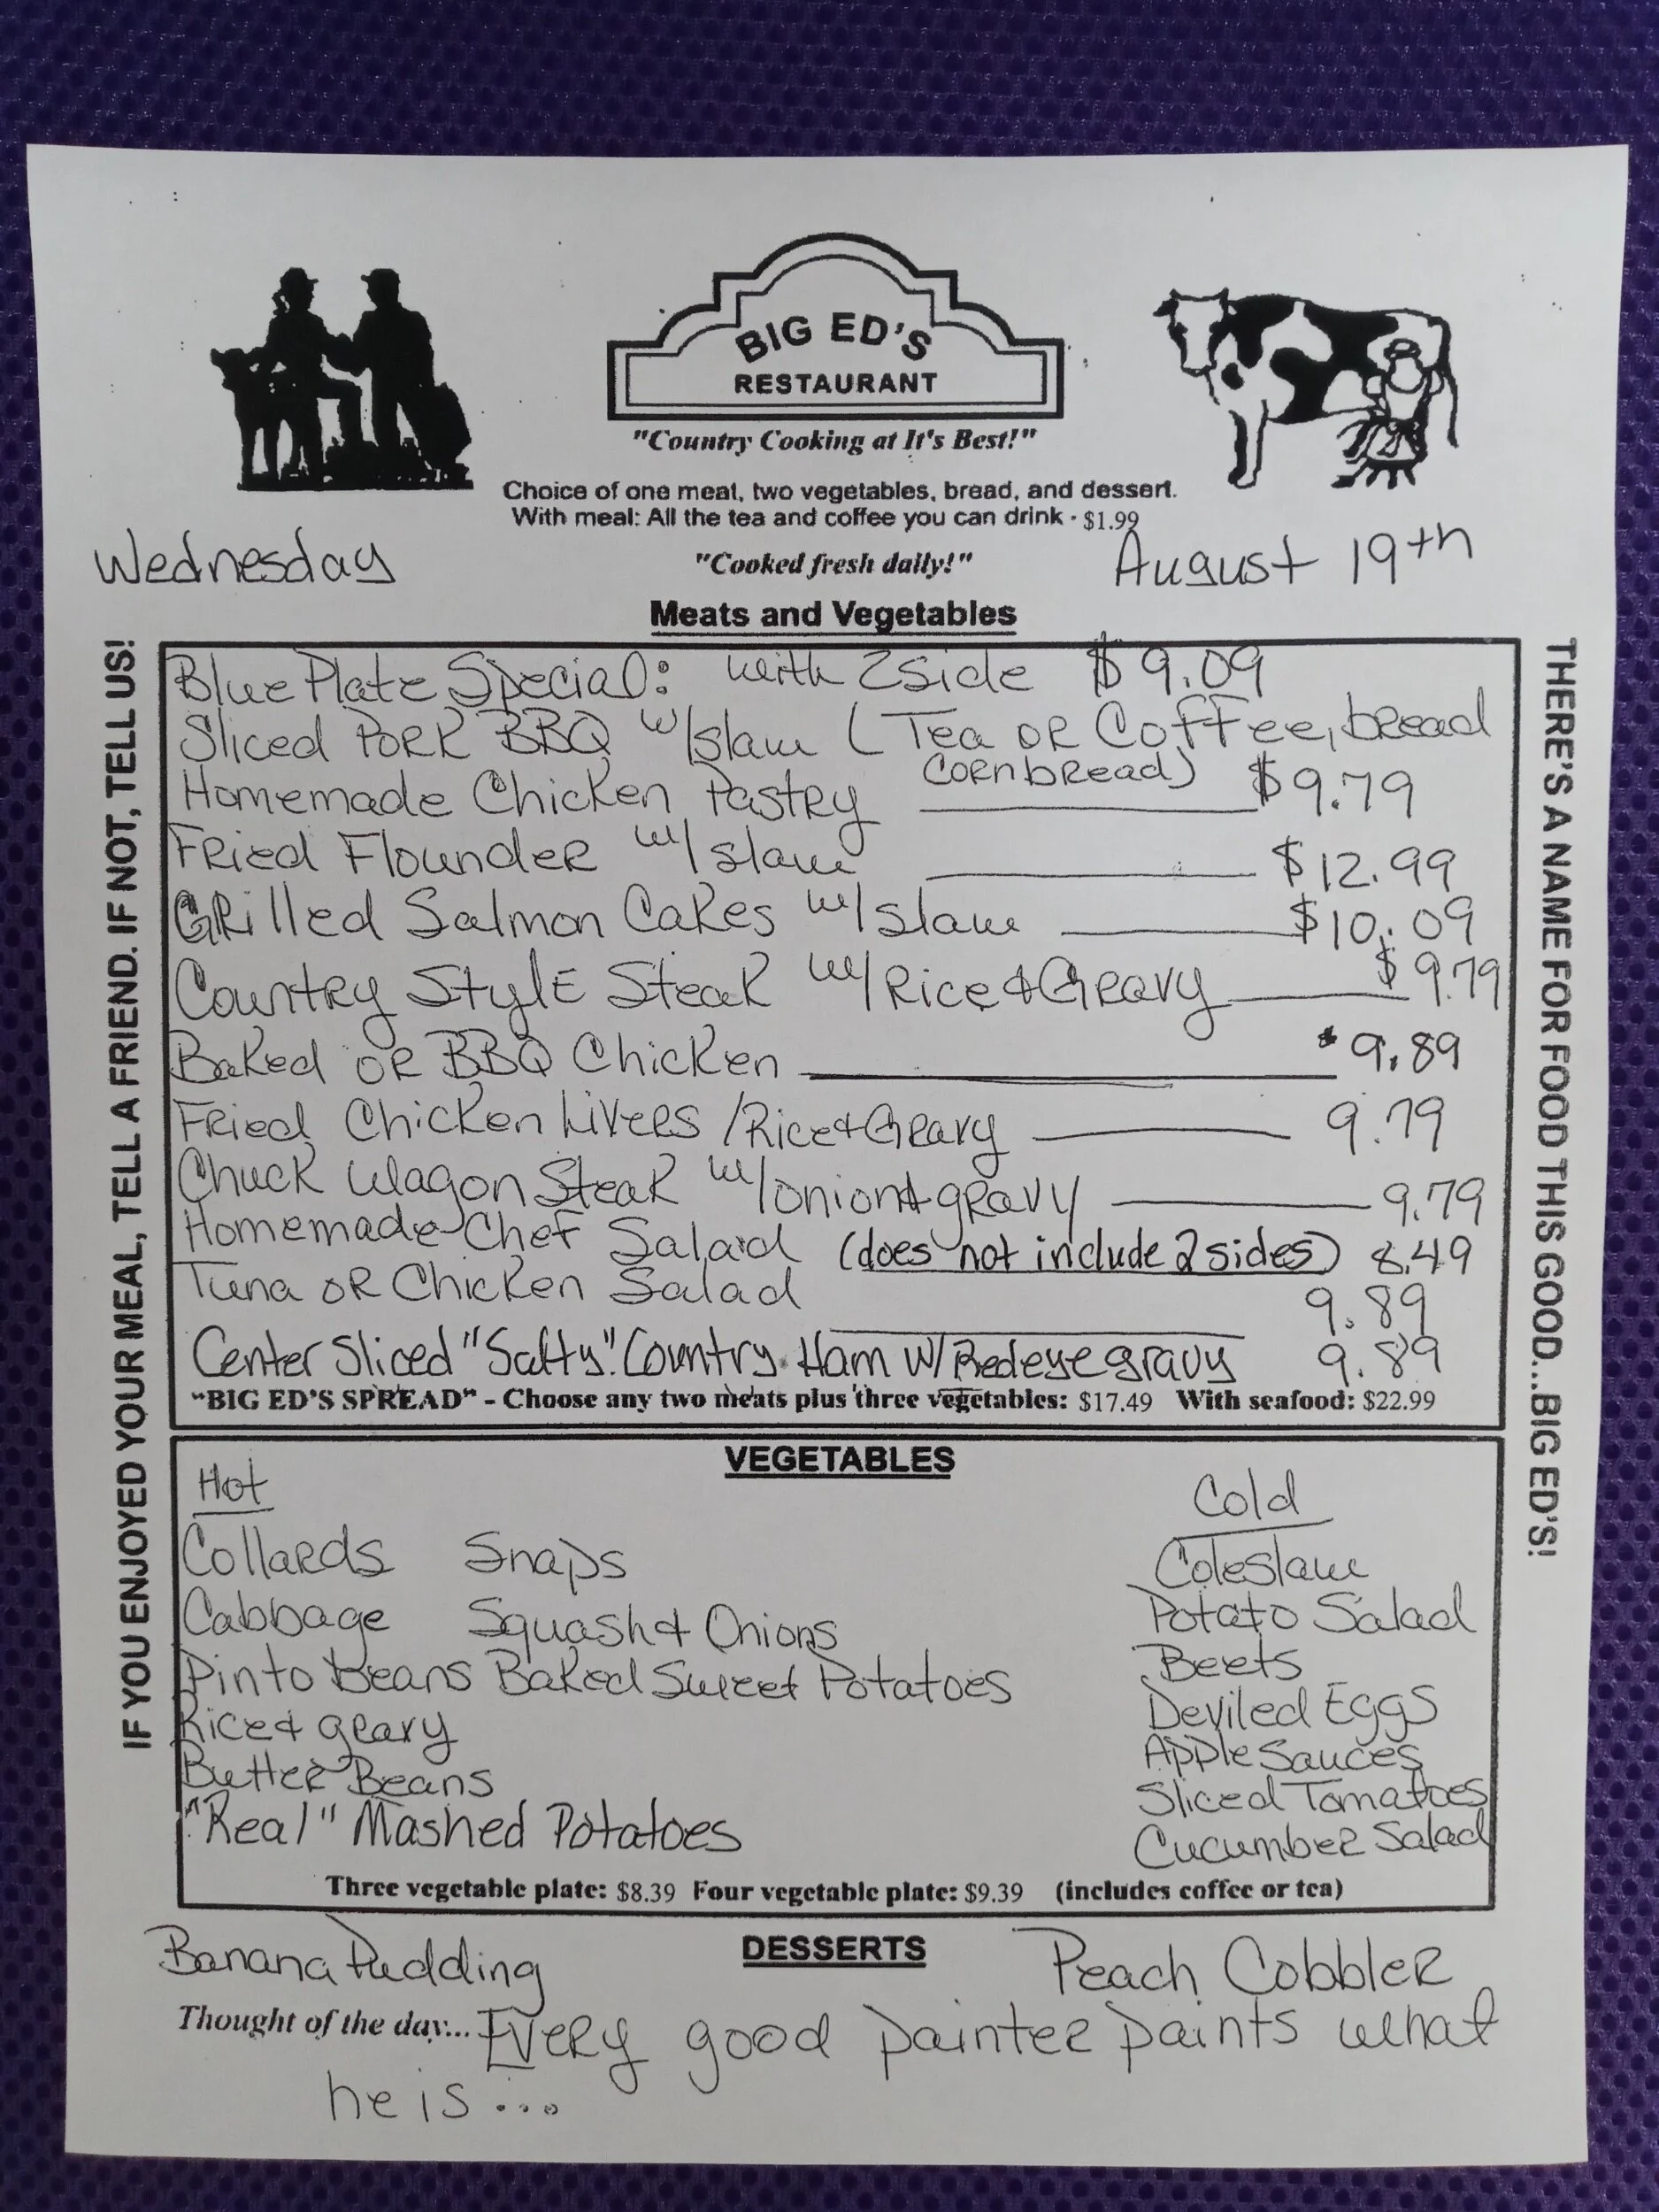 BIG ED'S
RESTAURANT
"Country Cooking at It's Best!"
Choice of one meat, two vegetables, bread, and dessert.
With meal: All the tea and coffee you can drink · $1.99
Wednesday "Cooked fresh daily!" August 19th
Meats and Vegetables
IF YOU ENJOYED YOUR MEAL, TELL A FRIEND. IF NOT, TELL US!
Blue Plate Special: with 2 side $9.09
Sliced Pork BBQ w/slaw (Tea or Coffee, bread
cornbread)
Homemade Chicken Pastry $9.79
Fried Flounder w/slaw $12.99
Grilled Salmon Cakes w/slaw $10.09
Country Style Steak w/Rice & Gravy $9.79
Baked or BBQ Chicken $9.89
Fried Chicken Livers /Rice & Gravy 9.79
Chuck Wagon Steak w/onion & gravy 9.79
Homemade Chef Salad (does not include 2 sides) 8.49
Tuna or Chicken Salad 9.89
Center Sliced "Salty" Country Ham w/ Redeye gravy 9.89
"BIG ED'S SPREAD" - Choose any two meats plus three vegetables: $17.49 With seafood: $22.99
THERE'S A NAME FOR FOOD THIS GOOD...BIG ED'S!
VEGETABLES
Hot
Collards Snaps
Cabbage Squash & Onions
Pinto Beans Baked Sweet Potatoes
Rice & gravy
Butter Beans
"Real" Mashed Potatoes
Cold
Coleslaw
Potato Salad
Beets
Deviled Eggs
Apple Sauces
Sliced Tomatoes
Cucumber Salad
Three vegetable plate: $8.39 Four vegetable plate: $9.39 (includes coffee or tea)
DESSERTS
Banana Pudding Peach Cobbler
Thought of the day... Every good painter paints what
he is...